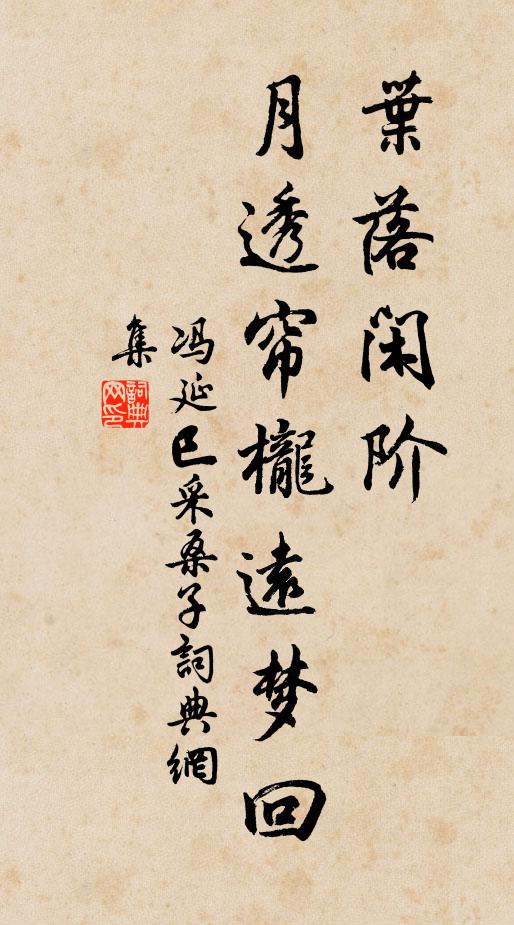 葉落闲阶
月透帘櫳遠梦回
冯延巳采桑子詞典網
集
詞典
网印